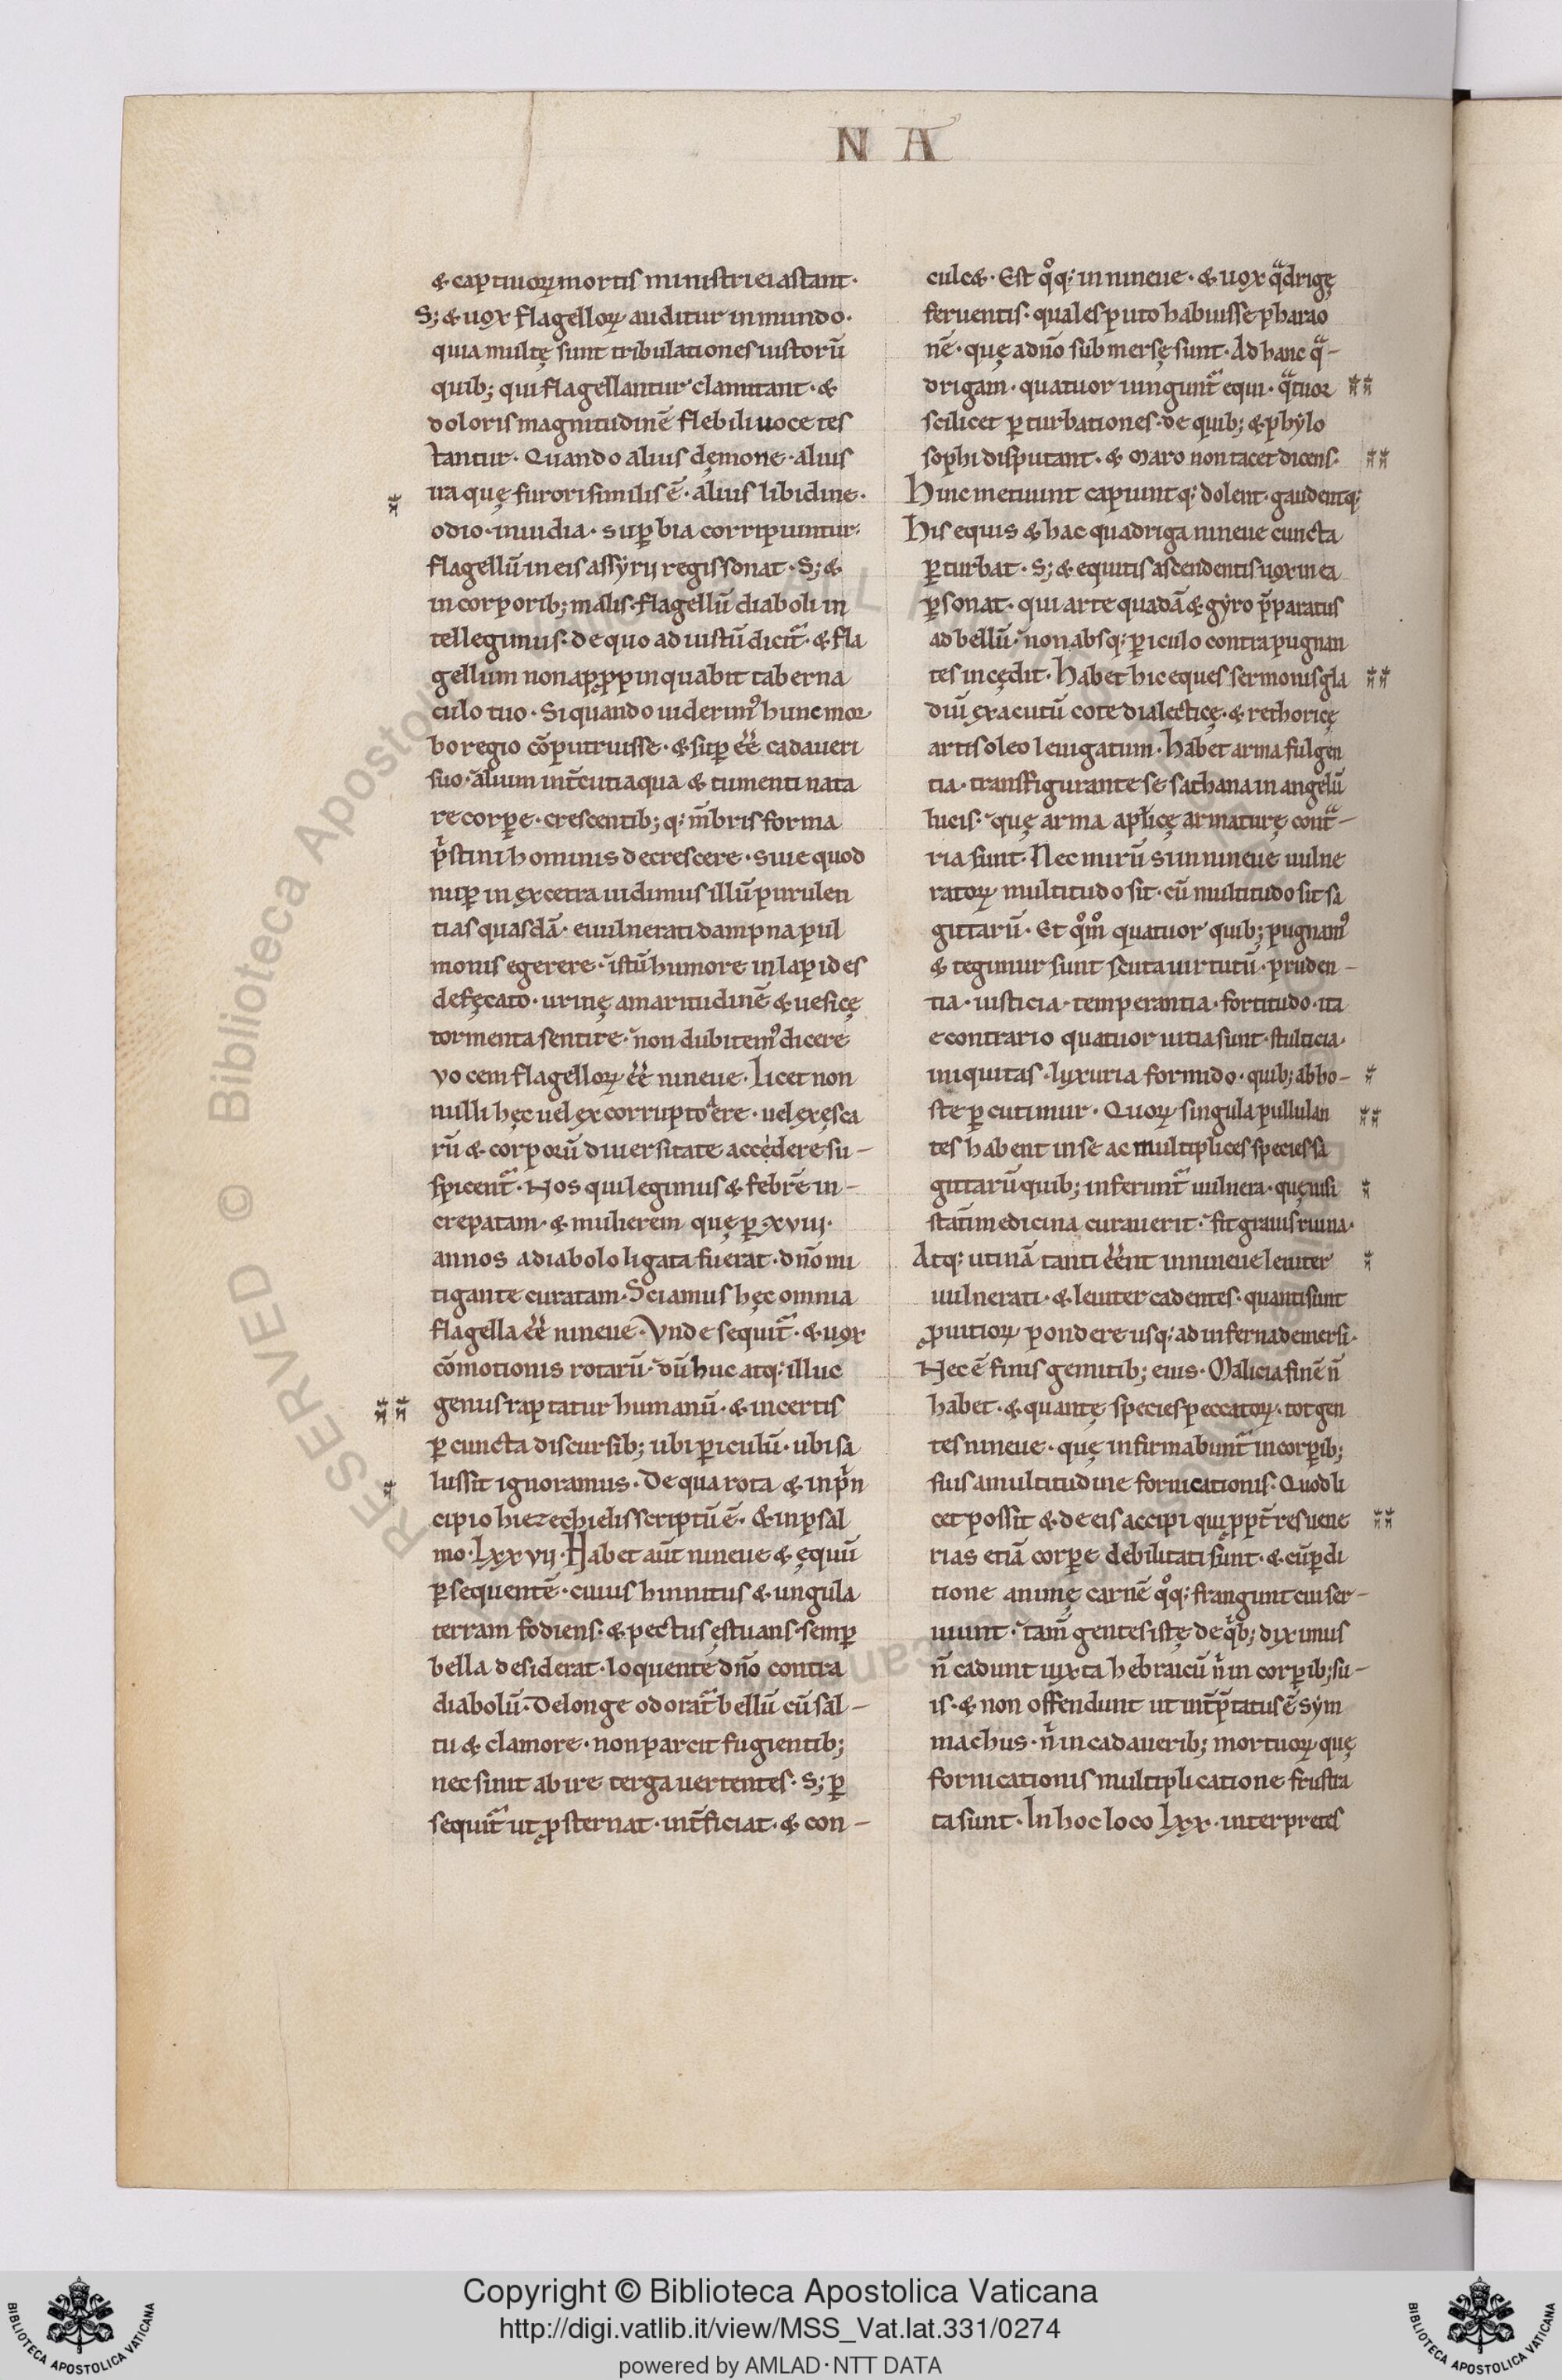 N A
& captiuoꝝ mortis ministri ei astant·
S; & uox flagelloꝝ auditur in mundo·
quia multę sunt tribulationes iustorū
quib; qui flagellantur clamitant· &
doloris magnitudinē flebili uoce tes
tantur· Quando alius dęmone· alius
ira quę furori similis ē· alius libidine·
odio· inuidia· suꝑbia corripiuntur·
flagellū in eis assyrij regis sonat· S; &
in corporib; malis· flagellū diaboli in
tellegimus· de quo ad iustū dicit᷑· & fla
gellum non appꝓpinquabit taberna
culo tuo· Si quando uiderimꝰ hunc mor
bo regio cōputruisse· & suꝑ ēē cadaueri
suo· alium int̄cuti aqua & tumenti nata
re corꝑe· crescentib; q: m̄bris forma
p̄stini hominis decrescere· siue quod
nuꝑ in excetra uidimus illū purulen
tias quasdā· e uulnerati dampna pul
monis egerere· istū humore in lapides
defęcato· urinę amaritudinē & uesicę
tormenta sentire· non dubitemꝰ dicere
vocem flagelloꝝ ēē nineue· Licet non
nulli hęc uel ex corrupto aere· uel ex esca
rū & corporū diuersitate accedere su-
spicent᷑· Nos qui legimus & febrē in-
crepatam· & mulierem quę ꝑ xviij·
annos a diabolo ligata fuerat· dn̄o mi
tigante curatam· Sciamus hęc omnia
flagella ēē nineue· Vnde sequit᷑· & uox
cōmotionis rotarū· dū huc atq: illuc
genus raptatur humanū· & incertis
ꝑ cuncta discursib; ubi ꝑiculū· ubi sa
lus sit ignoramus· De qua rota & in pͥn
cipio hiezechielis scriptū ē· & in psal
mo· lxxvij· Habet aūt nineue & ęquū
ꝑsequentē· cuius hinnitus & ungula
terram fodiens· & pectus ęstuans· semꝑ
bella desiderat· loquente dn̄o contra
diabolū· De longe odorat᷑ bellū cū sal-
tu & clamore· non parcit fugientib;
nec sinit abire terga uertentes· S; ꝑ
sequit᷑ ut ꝓsternat· int̄ficiat· & con-
culc&· Est qͦq: in nineue· & uox qͣdrigę
feruentis· quales puto habuisse pharao
nē· quę ad n̄o submersę sunt· Ad hanc qͣ-
drigam· quatuor iungunt᷑ equi· qͣtuor
scilicet ꝑturbationes· de quib; & phylo
sophi disputant· & Maro non tacet dicens·
Hinc metuunt capiuntq: dolent· gaudentq:
His equis & hac quadriga nineue cuncta
ꝑturbat· S; & equitis ascendentis uox in ea
ꝑsonat· qui arte quadā & gyro p̄paratus
ad bellū· non absq: ꝑiculo contra pugnan
tes incędit· Habet hic eques sermonis gla
diū exacutū cote dialecticę· & rethoricę
artis oleo leuigatum· Habet arma fulgen
tia· transfigurante se sathana in angelū
lucis· quę arma aplicę armaturę contͣ-
ria sunt· Nec mirū si in nineue uulne
ratoꝝ multitudo sit· cū multitudo sit sa
gittarū· Et qͦm̊ quatuor quib; pugnamꝰ
& tegimur sunt scuta uirtutū· pruden-
tia· iusticia· temperantia· fortitudo· ita
e contrario quatuor uitia sunt· stulticia·
iniquitas· luxuria formido· quib; ab ho-
ste ꝑcutimur· Quoꝝ singula pullulan
tes habent in se ac multiplices species sa
gittarū quib; inferunt᷑ uulnera· quę nisi
statī medicina curauerit· fit grauis ruina·
Atq: utinā tanti ēēnt in nineue leuiter
uulnerati· & leuiter cadentes· quanti sunt
ꝓ uitioꝝ pondere usq: ad inferna demersi·
Nec ē finis gentib; eius· Malicia finē n̄
habet· & quantę species peccatoꝝ· tot gen
tes nineue· quę infirmabunt᷑ in corꝑib;
suis a multitudine fornicationis· Quod li
cet possit & de eis accipi qui ꝓpt̄ res uene
rias etiā corꝑe debilitati sunt· & cū ꝑdi
tione animę carnē qͦq: frangunt cui ser-
uiunt· tam̄ gentes istę de qͥb; diximus
n̄ cadunt iuxta hebraicū nͥ in corꝑib; su-
is· & non offendunt ut int̄p̄tatus ē sym
machus· nͥ in cadauerib; mortuoꝝ quę
fornicationis multiplicatione frustra
ta sunt· In hoc loco lxx· interpretes
RESERVED © Biblioteca Apostolica
Copyright © Biblioteca Apostolica Vaticana
http://digi.vatlib.it/view/MSS_Vat.lat.331/0274
powered by AMLAD·NTT DATA
BIBLIOTECA APOSTOLICA VATICANA
BIBLIOTECA APOSTOLICA VATICANA